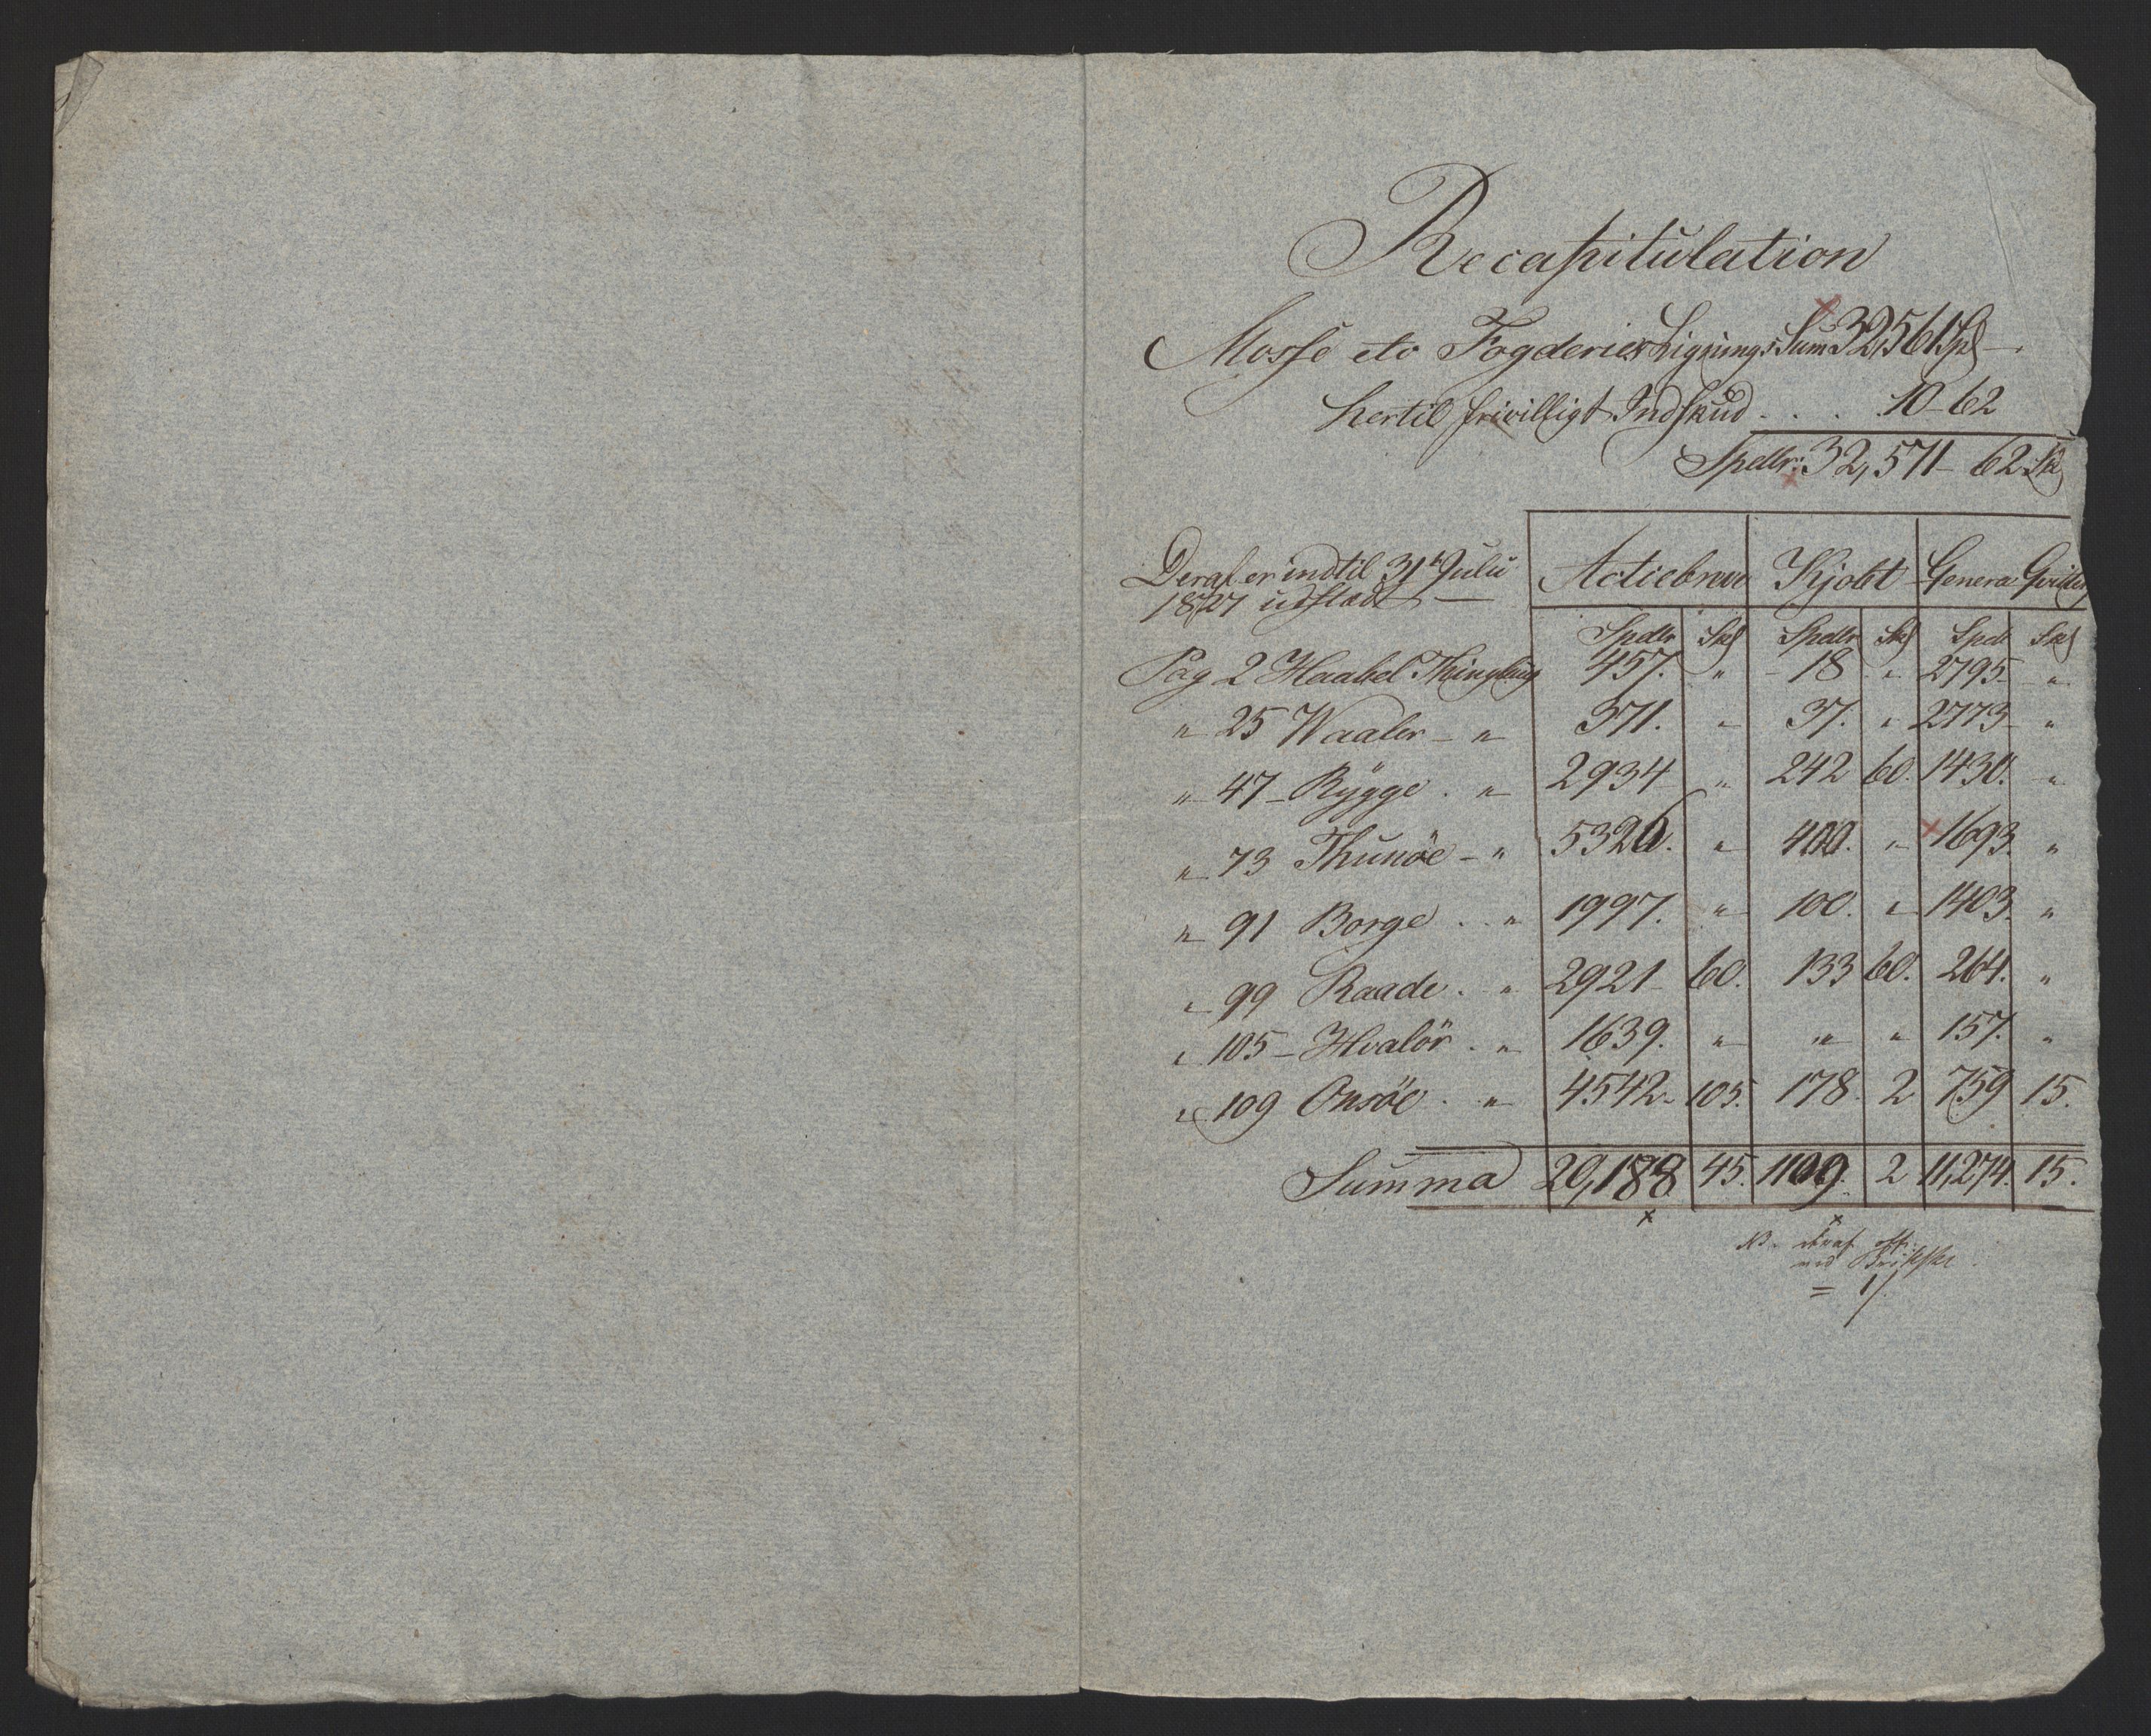 Recapitulation
Mosse etc Fogderies Lignings Sum 32,561 Spd -
hertil frivilligt Indskud . . . . 10 - 62
Spdlr: 32,571 - 62 Sk
Deraf er indtil 31te Julii 1827 udstædt — Actiebreve Kjobt Genera Qvitter
Spdlr Sk Spdlr Sk Spdl Sk
Pag 2 Haabel Thinglag 457. " - 18 " 2795 - "
" 25 Waaler - " 371. " 37. " 2773 "
" 47 - Rÿgge . " 2934 " 242 60. 1430. "
" 73 Thunöe - " 5326. " 400. " 1693. "
" 91 Borge . . " 1997. " 100. " 1403. "
" 99 Raade . " 2921 60. 133 60. 264. "
" 105 - Hvalör . " 1639. " " " 157. "
" 109 Onsöe . " 4542 - 105. 178. 2 759 15.
Summa 20,188 45. 1109. 2 11,274. 15.
NB. deraf
ved
= 1/.